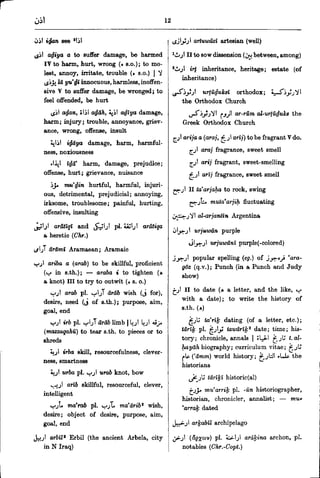 اذن
12
اذن iḏan see ¹اذا
اذى aḏiya a to suffer damage, be harmed
IV to harm, hurt, wrong (ه s.o.); to mo-
lest, annoy, irritate, trouble (ه s.o.) | لا
يؤذى lā yu'ḏī innocuous, harmless, inoffen-
sive V to suffer damage, be wronged; to
feel offended, be hurt
اذى aḏan, اذاة aḏāh, اذية aḏīya damage,
harm; injury; trouble, annoyance, griev-
ance, wrong, offense, insult
اذية iḏāya damage, harm, harmful-
ness, noxiousness
ايذاء īḏā' harm, damage, prejudice;
offense, hurt; grievance, nuisance
مؤذ mu'ḏin hurtful, harmful, injuri-
ous, detrimental, prejudicial; annoying,
irksome, troublesome; painful, hurting,
offensive, insulting
اراتيقى arātīqī and pl. اراتقة arātiqa
a heretic (Chr.)
آرامى ārāmī Aramaean; Aramaic
ارب ariba a (arab) to be skillful, proficient
(ب in s.th.); — araba i to tighten (ه
a knot) III to try to outwit (ه s. o.)
ارب arab pl. آراب ārāb wish (ل for),
desire, need (ل of s.th.); purpose, aim,
goal, end
ارب irb pl. آراب ārāb limb | مزقه اربا اربا
(mazzaqahū) to tear s.th. to pieces or to
shreds
اربة irba skill, resourcefulness, clever-
ness, smartness
اربة urba pl. ارب urab knot, bow
اريب arīb skillful, resourceful, clever,
intelligent
مأرب ma'rab pl. مآرب ma'ārib² wish,
desire; object of desire, purpose, aim,
goal, end
اربل arbil² Erbil (the ancient Arbela, city
in N Iraq)
ارتوازى artuwāzī artesian (well)
¹ارث II to sow dissension (بين between, among)
²ارث irṯ inheritance, heritage; estate (of
inheritance)
ارثوذكسى urṯūḏuksī orthodox; الارثوذكس
the Orthodox Church
الروم الارثوذكس ar-rūm al-urṯūḏuks the
Greek Orthodox Church
ارج arija a (araj, اريج arīj) to be fragrant V do.
ارج araj fragrance, sweet smell
ارج arij fragrant, sweet-smelling
اريج arīj fragrance, sweet smell
ارجح II ta'arjaḥa to rock, swing
متأرجح muta'arjiḥ fluctuating
الارجنتين al-arjantīn Argentina
ارجوان urjuwān purple
ارجوانى urjuwānī purple(-colored)
ارجوز popular spelling (eg.) of اراجوز 'ara-
gōz (q.v.); Punch (in a Punch and Judy
show)
ارخ II to date (ه a letter, and the like, ب
with a date); to write the history of
s.th. (ه)
تأريخ ta'rīḵ dating (of a letter, etc.);
tārīḵ pl. تواريخ tawārīḵ² date; time; his-
tory; chronicle, annals | تاريخ الحياة t. al-
ḥayāh biography; curriculum vitae; تاريخ
عام ('āmm) world history; علماء التاريخ the
historians
تاريخى tārīḵī historic(al)
مؤرخ mu'arriḵ pl. -ūn historiographer,
historian, chronicler, annalist; — mu-
'arraḵ dated
ارخبيل arḵabīl archipelago
ارخن (ἄρχων) pl. اراخنة arāḵina archon, pl.
notables (Chr.-Copt.)